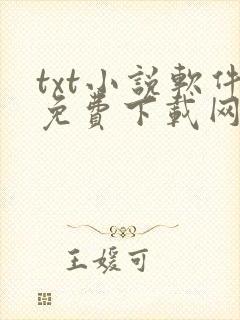 txt小説軟件
免費下載网
王媛可